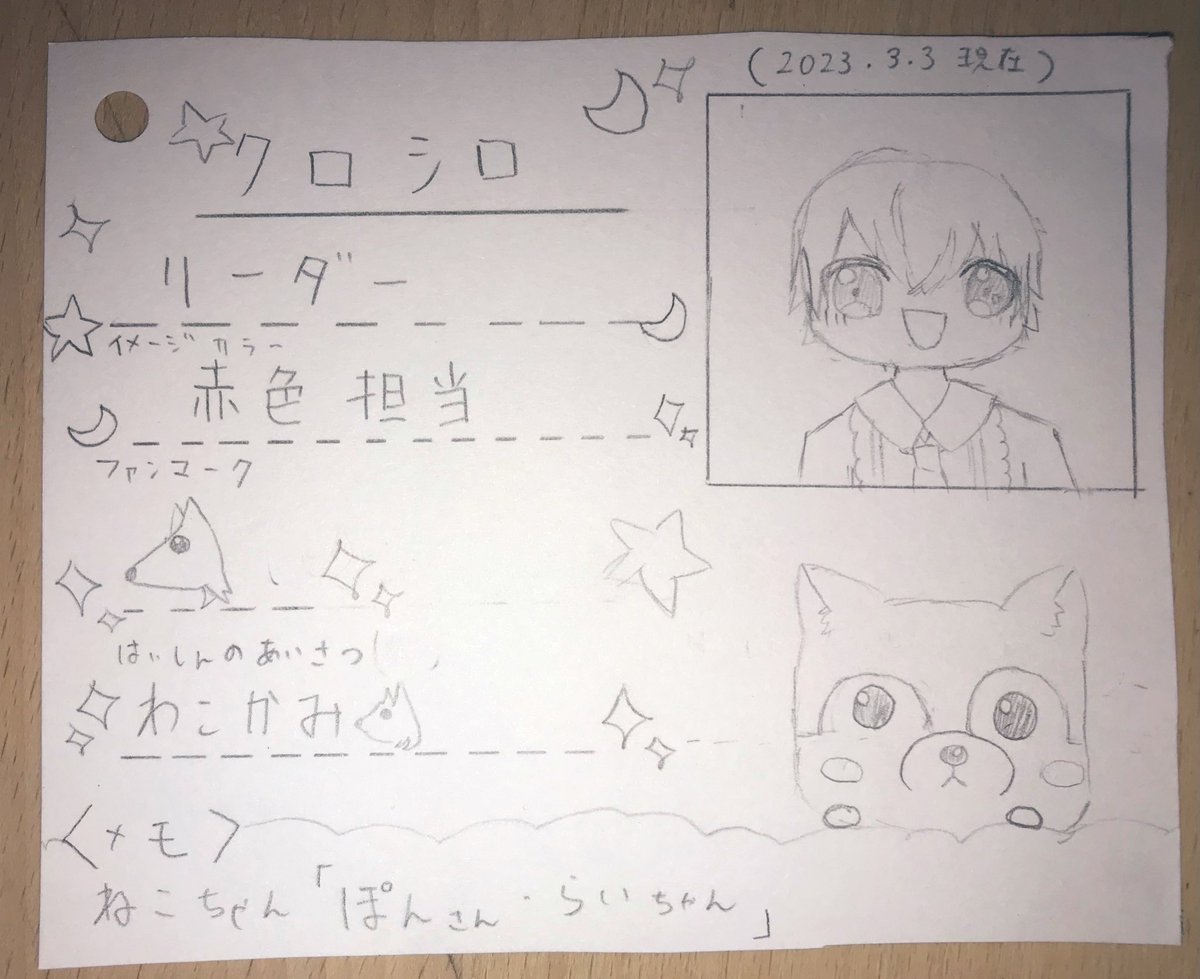 (2023.3.3 現在)
クロシロ
リーダー
イメージカラー
赤色 担当
ファンマーク
はいしんのあいさつ
わこかみ
〈メモ〉
ねこちゃん「ぽんさん・らいちゃん」